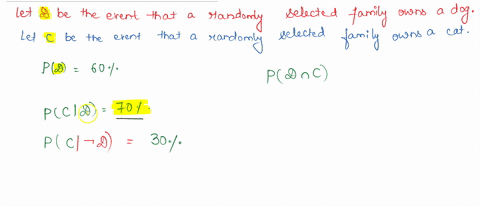 Let D be the event that a randomly selected family owns a dog.
Let C be the event that a randomly selected family owns a cat.
P(D) = 60%
P(D ∩ C)
P(C|D) = 70%.
P(C|¬D) = 30%.